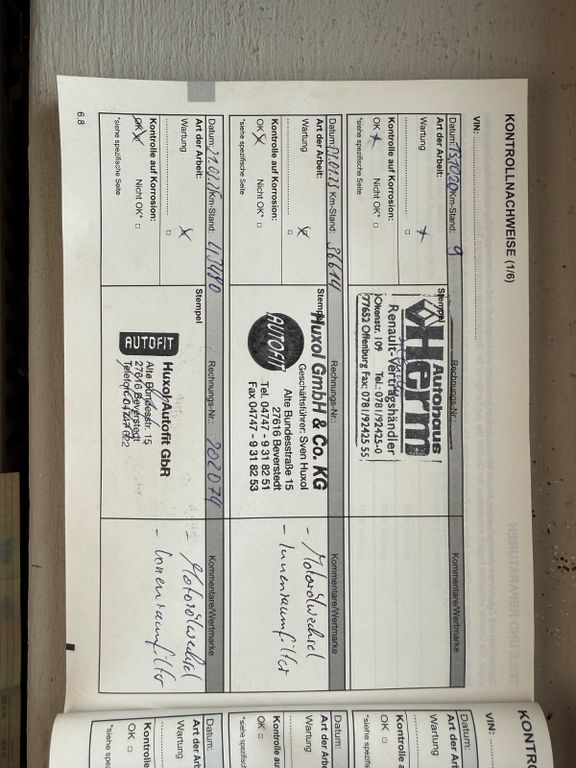 KONTROLLNACHWEISE (1/6)
VIN:
Datum: 15.10.20 Km-Stand: 9
Art der Arbeit:
Wartung
Kontrolle auf Korrosion:
OK Nicht OK*
*siehe spezifische Seite
Stempel
Rechnungs-Nr.
Autohaus
Herm
Renault-Vertragshändler
Okenstr. 109 Tel.: 0781/92425-0
77652 Offenburg Fax: 0781/92425 55
Kommentare/Wertmarke
Datum: Km-Stand: 36614
Art der Arbeit:
Wartung
Kontrolle auf Korrosion:
OK Nicht OK*
*siehe spezifische Seite
Stempel
Rechnungs-Nr.
AUTOFIT
Huxol GmbH & Co. KG
Geschäftsführer: Sven Huxol
Alte Bundesstraße 15
27616 Beverstedt
Tel. 04747 - 9 31 82 51
Fax 04747 - 9 31 82 53
Kommentare/Wertmarke
- Motorölwechsel
- Innenraumfilter
Datum: Km-Stand: 43440
Art der Arbeit:
Wartung
Kontrolle auf Korrosion:
OK Nicht OK*
*siehe spezifische Seite
Stempel
Rechnungs-Nr. 202079
AUTOFIT
Huxol Autofit GbR
Alte Bundesstr. 15
27616 Beverstedt
Telefon
Kommentare/Wertmarke
- Motorölwechsel
- Innenraumfilter
6.8
KONTR
VIN:
Datum:
Art der A
Wartung
Kontrolle a
OK
*siehe spe
Datum:
Art der Arb
Wartung
Kontrolle au
OK
*siehe spezi
Datum:
Art der Arbe
Wartung
Kontrolle
OK
*siehe spezifi